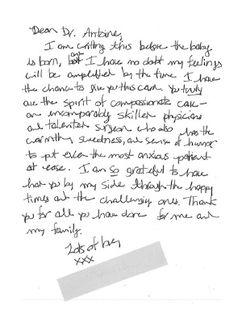 Dear Dr. Antoine,
I am writing this before the baby
is born, but I have no doubt my feelings
will be amplified by the time I have
the chance to give you this card. You truly
are the spirit of compassionate care –
an incomparably skilled physician
and talented surgeon who also has the
warmth, sweetness, and sense of humor
to put even the most anxious patient
at ease. I am so grateful to have
had you by my side through the happy
times and the challenging ones. Thank
you for all you have done for me and
my family.
Lots of love,
xxx